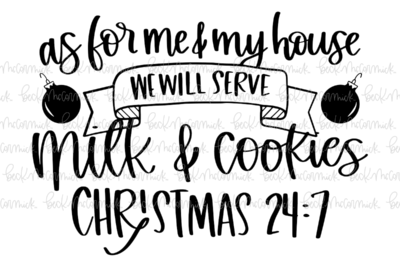 as for me & my house
WE WILL SERVE
milk & cookies
CHRISTMAS 24:7